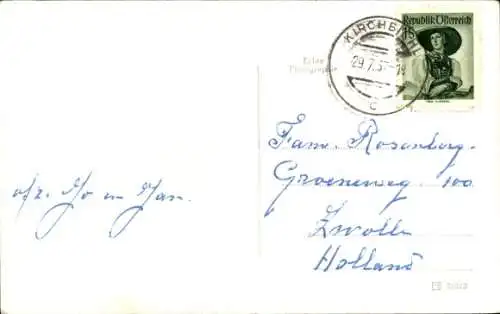 KIRCHBICHL
29.7.5
18
C
Republik Österreich
Echte
Photographie
Fam. Rosenberg-
Groeneweg. 100
Zwolle
Holland
afz. Jo en Jan.